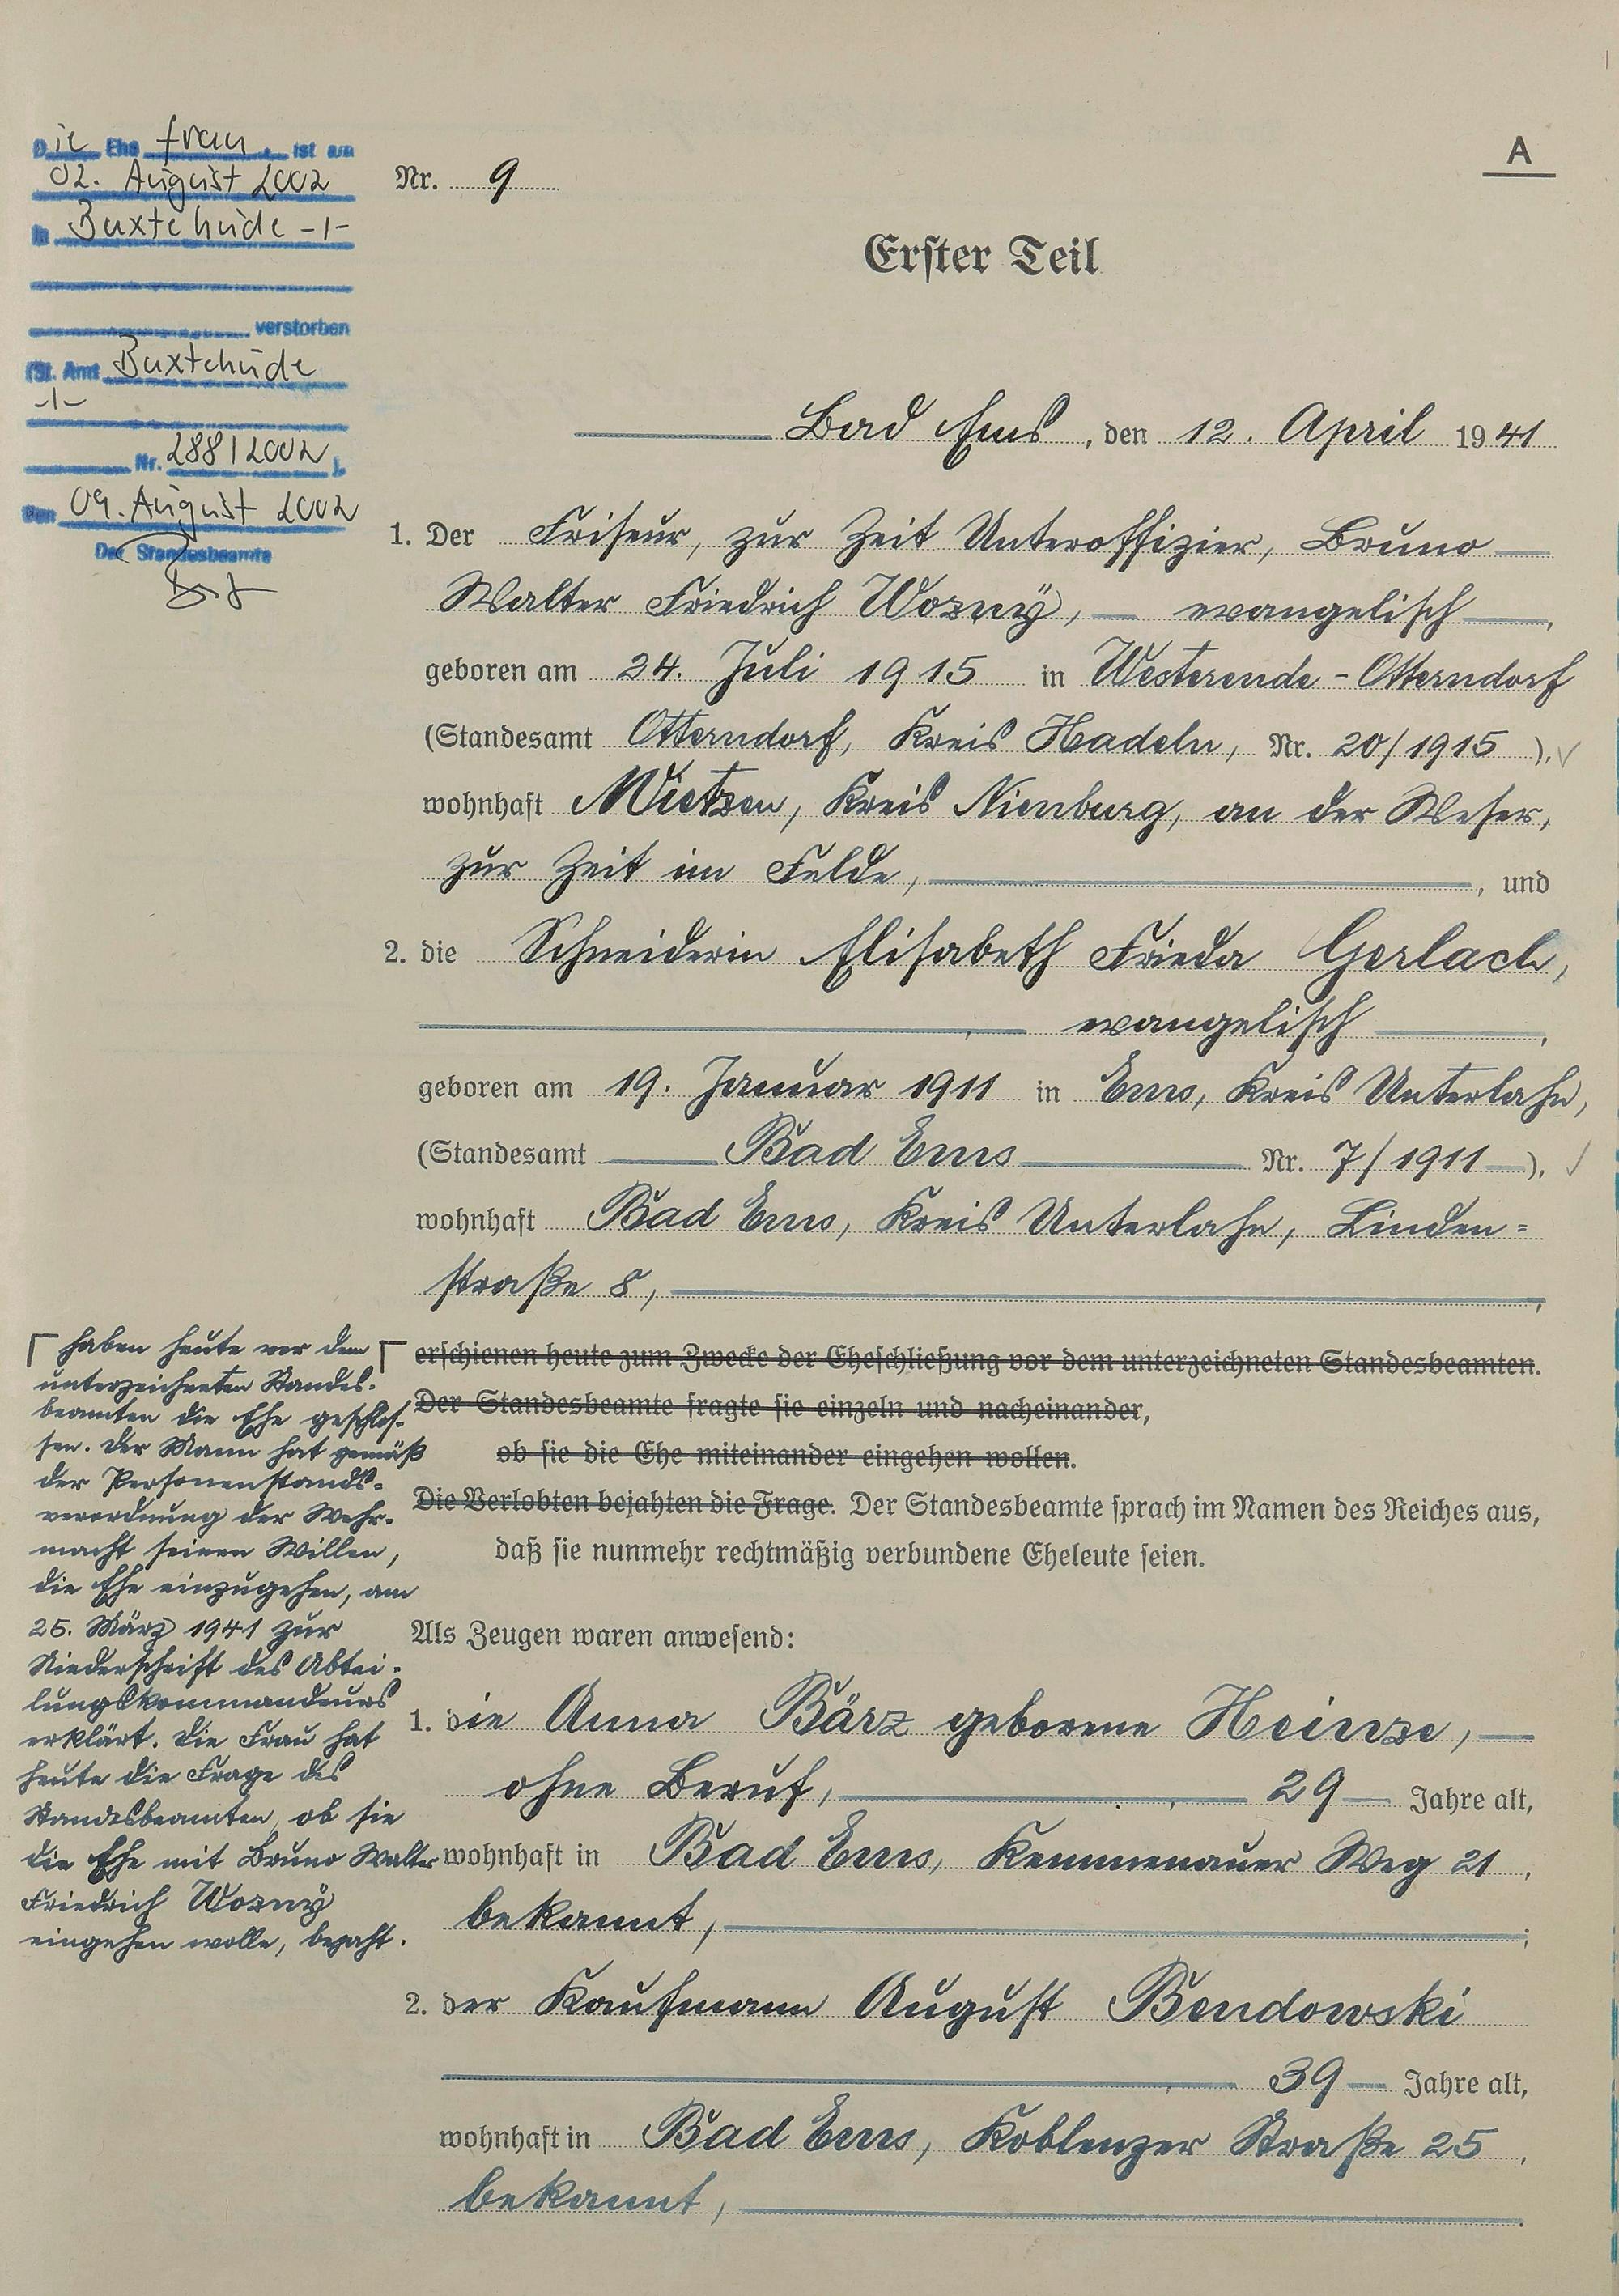 Die Ehe frau ist am
02. August 2002
in Buxtehude -1-
verstorben
(St. Amt Buxtehude
-1-
Nr. 288/2002 ).
Den 09. August 2002
Der Standesbeamte
A
Nr. 9
Erster Teil
Bad Ems, den 12. April 1941
1. Der Friseur, zur Zeit Unteroffizier, Bruno
Walter Friedrich Wozny, evangelisch,
geboren am 24. Juli 1915 in Westerende-Otterndorf
(Standesamt Otterndorf, Kreis Hadeln, Nr. 20/1915 ).
wohnhaft Wietzen, Kreis Nienburg, an der Weser,
zur Zeit im Felde, , und
2. die Schneiderin Elisabeth Frieda Gerlach,
evangelisch,
geboren am 19. Januar 1911 in Ems, Kreis Unterlahn,
(Standesamt Bad Ems Nr. 7/1911 ).
wohnhaft Bad Ems, Kreis Unterlahn, Linden=
straße 8,
erschienen heute zum Zwecke der Eheschließung vor dem unterzeichneten Standesbeamten.
Der Standesbeamte fragte sie einzeln und nacheinander,
ob sie die Ehe miteinander eingehen wollen.
Die Verlobten bejahten die Frage. Der Standesbeamte sprach im Namen des Reiches aus,
daß sie nunmehr rechtmäßig verbundene Eheleute seien.
haben heute vor dem
unterzeichneten Standes-
beamten die Ehe geschlos-
sen. Der Mann hat gemäß
der Personenstands-
verordnung der Wehr-
macht seinen Willen,
die Ehe einzugehen, am
25. März 1941 zur
Niederschrift des Abtei-
lungskommandeurs
erklärt. Die Frau hat
heute die Frage des
Standesbeamten, ob sie
die Ehe mit Bruno Walter
Friedrich Wozny
eingehen wolle, bejaht.
Als Zeugen waren anwesend:
1. die Anna Bärz geborene Heinze,
ohne Beruf, 29 Jahre alt,
wohnhaft in Bad Ems, Kemmenauer Weg 21,
bekannt, ;
2. der Kaufmann August Bendowski
39 Jahre alt,
wohnhaft in Bad Ems, Koblenzer Straße 25,
bekannt, .